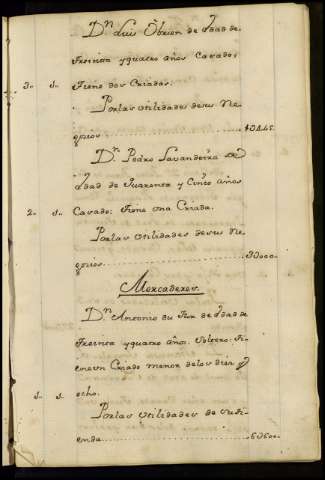 Dn Luis Obrien de Edad de
treinta y quatro años Casado,
3.. s.. tiene dos Criados.
Por las utilidades de su Ne
gocio
Dn Pedro Lavandeira de
Edad de Quarenta y Cinco años
2.. s.. Casado: tiene una Criada.
Por las utilidades de su Ne
gocio 3U000..
Mercaderes.
Dn Antonio de edad de
treinta y quatro años. Soltero: ti
ene un Criado menor de los diez y
1.. s.. ocho.
Por las utilidades de su ti
enda 6U600..